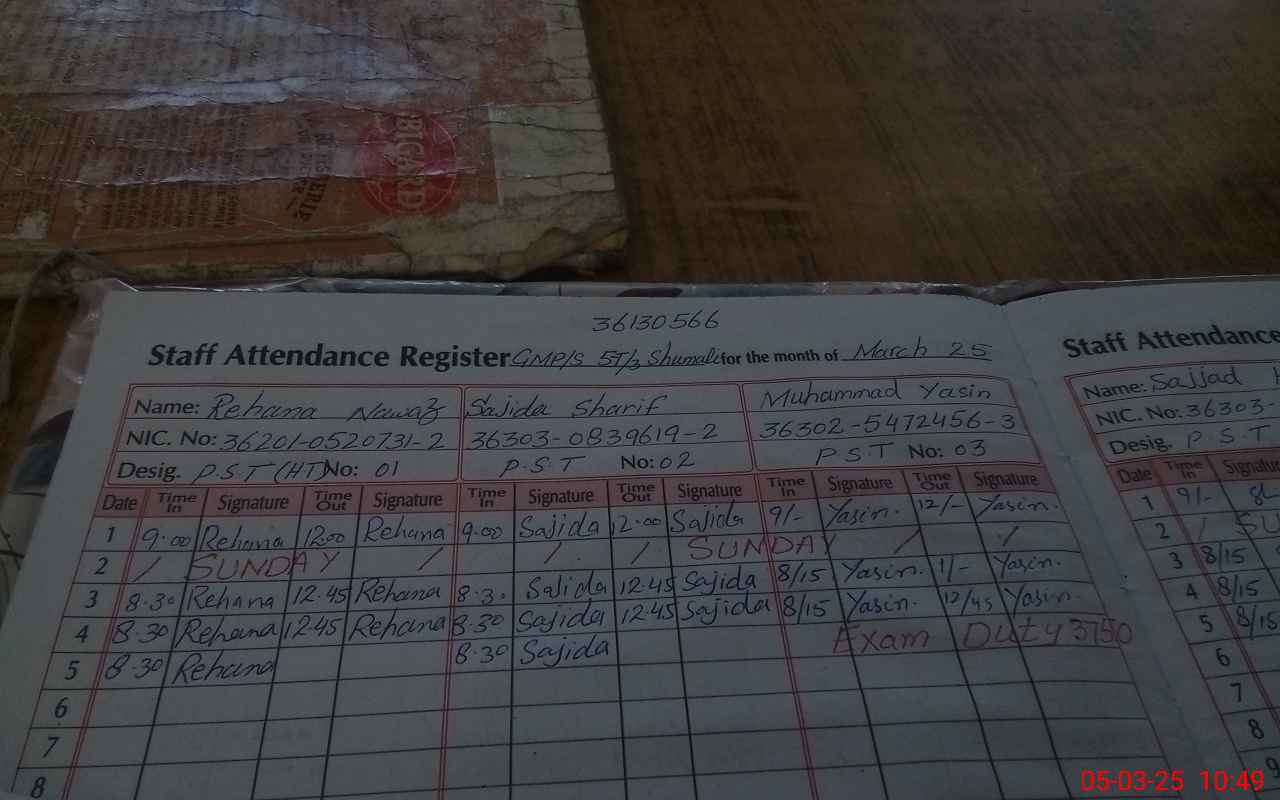 BIGARD
36130566
Staff Attendance Register GMP/S 5T/3 Shumali for the month of March 25
Name: Rehana Nawaz Sajida Sharif Muhammad Yasin
NIC. No: 36201-0520731-2 36303-0839619-2 36302-5472456-3
Desig. P.S.T (HT) No: 01 P.S.T No: 02 P.S.T No: 03
Date Time In Signature Time Out Signature Time In Signature Time Out Signature Time In Signature Time Out Signature
1 9.00 Rehana 12.00 Rehana 9.00 Sajida 12.00 Sajida 9/- Yasin. 12/- Yasin.
2 / SUNDAY / / / SUNDAY / /
3 8.30 Rehana 12.45 Rehana 8.30 Sajida 12.45 Sajida 8/15 Yasin. 1/- Yasin.
4 8.30 Rehana 12.45 Rehana 8.30 Sajida 12.45 Sajida 8/15 Yasin. 12/45 Yasin.
5 8.30 Rehana 8.30 Sajida Exam Duty 3750
6
7
8
Staff Attendance
Name: Sajjad
NIC. No: 36303-
Desig. P.S.T
Date Time In Signature
1 9/-
2 / SU
3 8/15
4 8/15
5 8/15
6
7
8
9
05-03-25 10:49